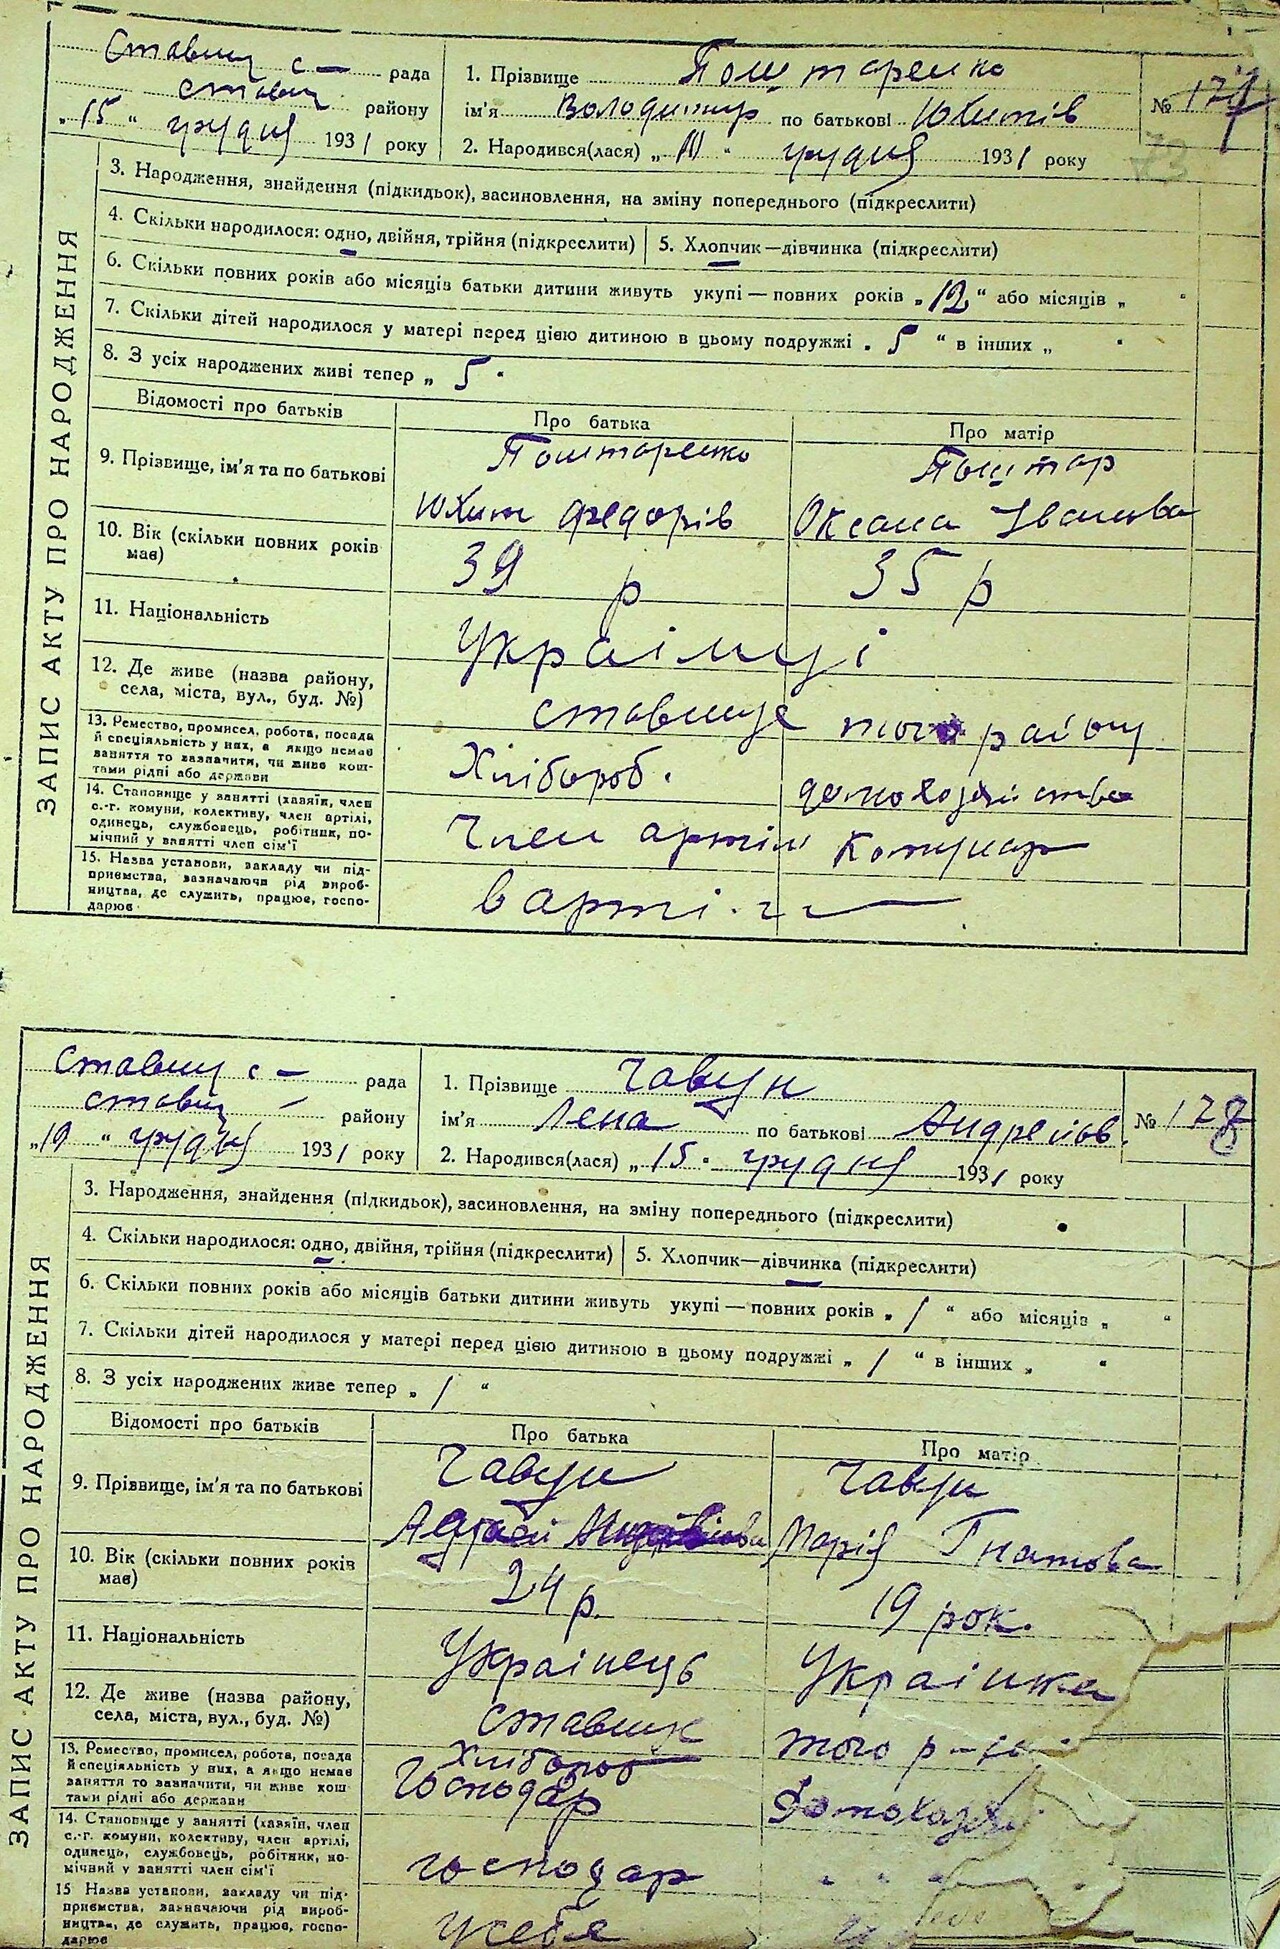 Ставищ с — рада
Ставищ району
„15" грудня 1931 року
1. Прізвище Поштаренко
ім'я Володимир по батькові Юхимів
2. Народився(лася) „ " грудня 1931 року
№ 177
ЗАПИС АКТУ ПРО НАРОДЖЕННЯ
3. Народження, знайдення (підкидьок), засиновлення, на зміну попереднього (підкреслити)
4. Скільки народилося: одно, двійня, трійня (підкреслити)
5. Хлопчик—дівчинка (підкреслити)
6. Скільки повних років або місяців батьки дитини живуть укупі — повних років „12" або місяців „ "
7. Скільки дітей народилося у матері перед цією дитиною в цьому подружжі „5" в інших „ "
8. З усіх народжених живі тепер „5"
Відомості про батьків
Про батька
Про матір
9. Прізвище, ім'я та по батькові
Поштаренко
Юхим Федорів
Поштар
Оксана Іванова
10. Вік (скільки повних років
має)
39 р
35 р
11. Національність
Українці
12. Де живе (назва району,
села, міста, вул., буд. №)
Ставище того району
13. Ремество, промисел, робота, посада
й спеціяльність у них, а якщо немає
заняття то зазначити, чи живе кош-
тами рідні або держави
Хлібороб.
домохозяйство
14. Становище у занятті (хазяїн, член
с.-г. комуни, колективу, член артілі,
одинець, службовець, робітник, по-
мічний у занятті член сім'ї
Член артілі Комунар
15. Назва установи, закладу чи під-
приємства, зазначаючи рід вироб-
ництва, де служить, працює, госпо-
дарює
в арті
Ставищ с — рада
Ставищ — району
„19" грудня 1931 року
1. Прізвище Чавун
ім'я Лена по батькові Андреїов.
2. Народився(лася) „15" грудня 1931 року
№ 178
ЗАПИС АКТУ ПРО НАРОДЖЕННЯ
3. Народження, знайдення (підкидьок), засиновлення, на зміну попереднього (підкреслити)
4. Скільки народилося: одно, двійня, трійня (підкреслити)
5. Хлопчик—дівчинка (підкреслити)
6. Скільки повних років або місяців батьки дитини живуть укупі — повних років „1" або місяців „ "
7. Скільки дітей народилося у матері перед цією дитиною в цьому подружжі „1" в інших „ "
8. З усіх народжених живе тепер „1"
Відомості про батьків
Про батька
Про матір
9. Прізвище, ім'я та по батькові
Чавун
Чавун
Марія Гнатова
10. Вік (скільки повних років
має)
24 р.
19 рок.
11. Національність
Українець
Українка
12. Де живе (назва району,
села, міста, вул., буд. №)
Ставищ
того
13. Ремество, промисел, робота, посада
й спеціяльність у них, а якщо немає
заняття то зазначити, чи живе кош-
тами рідні або держави
Хлібороб
господар
Домохазяй
14. Становище у занятті (хазяїн, член
с.-г. комуни, колективу, член артілі,
одинець, службовець, робітник, по-
мічний у занятті член сім'ї
господар
" " "
15 Назва установи, закладу чи під-
приємства, зазначаючи рід вироб-
ництва, де служить, працює, госпо-
дарює
у себе